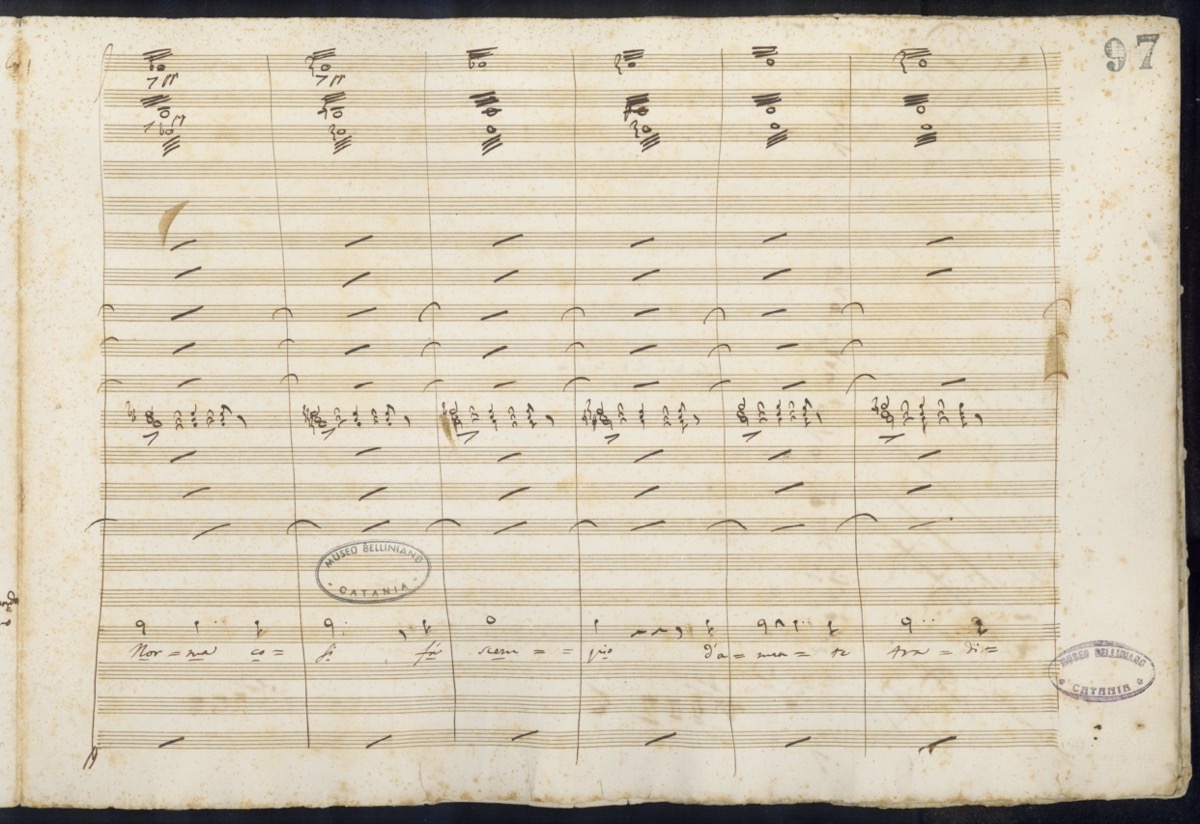 97
MUSEO BELLINIANO
CATANIA
Nor = ma co = sì fà scem = = pio d'a = man = te tra = di =
MUSEO BELLINIANO
CATANIA